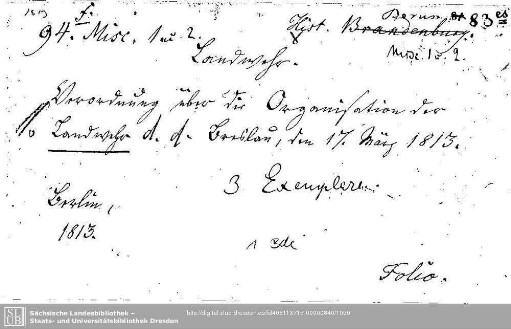 1813
94.f. Misc. 1 u. 2.
Hist. Brandenburg. 83
Misc. 1 u. 2.
Landwehr.
Verordnung über die Organisation der
Landwehr d. d. Breslau, den 17. März 1813.
3 Exemplare.
Berlin,
1813.
1
Folio.
SLUB
Sächsische Landesbibliothek –
Staats- und Universitätsbibliothek Dresden